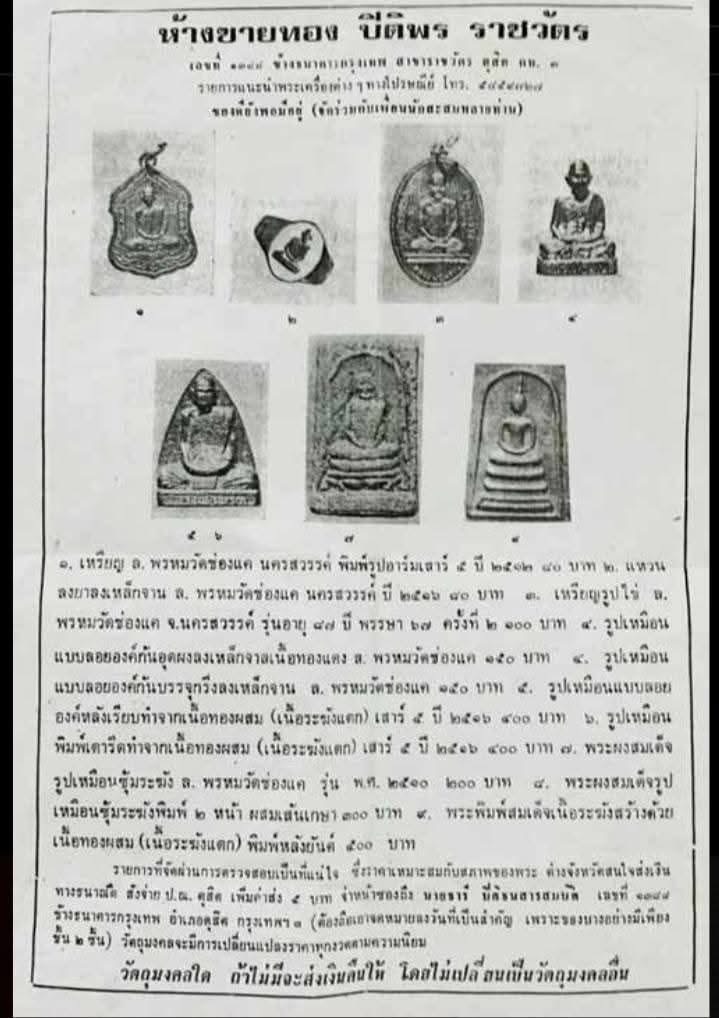 ห้างขายทอง ปีติพร ราชวัตร
เลขที่ ๑๓๘๘ ข้างธนาคารกรุงเทพ สาขาราชวัตร ดุสิต กท. ๓
รายการแนะนำพระเครื่องต่าง ๆ ทางไปรษณีย์ โทร.
ของที่ยังพอมีอยู่ (จัดร่วมกับเพื่อนนักสะสมหลายท่าน)
๑
๒
๓
๔
๕ ๖
๗
๙
๑. เหรียญ ล. พรหมวัดช่องแค นครสวรรค์ พิมพ์รูปอาร์มเสาร์ ๕ ปี ๒๕๑๒ ๘๐ บาท ๒. แหวน
ลงยาลงเหล็กจาน ล. พรหมวัดช่องแค นครสวรรค์ ปี ๒๕๑๖ ๘๐ บาท ๓. เหรียญรูปไข่ ล.
พรหมวัดช่องแค จ.นครสวรรค์ รุ่นอายุ ๘๗ ปี พรรษา ๖๗ ครั้งที่ ๒ ๑๐๐ บาท ๔. รูปเหมือน
แบบลอยองค์ก้นอุดผงลงเหล็กจาลเนื้อทองแดง ล. พรหมวัดช่องแค ๑๕๐ บาท ๔. รูปเหมือน
แบบลอยองค์ก้นบรรจุกริ่งลงเหล็กจาน ล. พรหมวัดช่องแค ๑๕๐ บาท ๕. รูปเหมือนแบบลอย
องค์หลังเรียบทำจากเนื้อทองผสม (เนื้อระฆังแตก) เสาร์ ๕ ปี ๒๕๑๖ ๔๐๐ บาท ๖. รูปเหมือน
พิมพ์เตารีดทำจากเนื้อทองผสม (เนื้อระฆังแตก) เสาร์ ๕ ปี ๒๕๑๖ ๔๐๐ บาท ๗. พระผงสมเด็จ
รูปเหมือนซุ้มระฆัง ล. พรหมวัดช่องแค รุ่น พ.ศ. ๒๕๑๐ ๒๐๐ บาท ๘. พระผงสมเด็จรูป
เหมือนซุ้มระฆังพิมพ์ ๒ หน้า ผสมเส้นเกษา ๓๐๐ บาท ๙. พระพิมพ์สมเด็จเนื้อระฆังสร้างด้วย
เนื้อทองผสม (เนื้อระฆังแตก) พิมพ์หลังยันต์ ๕๐๐ บาท
รายการที่จัดผ่านการตรวจสอบเป็นที่แน่ใจ ซึ่งราคาเหมาะสมกับสภาพของพระ ต่างจังหวัดสนใจส่งเงิน
ทางธนาณัติ สั่งจ่าย ป.ณ. ดุสิต เพิ่มค่าส่ง ๕ บาท จ่าหน้าซองถึง นายธาร์ ปีติธนสารสมบัติ เลขที่ ๑๓๘๘
ข้างธนาคารกรุงเทพ อำเภอดุสิต กรุงเทพฯ ๓ (ต้องถือเอาจดหมายลงวันที่เป็นสำคัญ เพราะของบางอย่างมีเพียง
ชิ้น ๒ ชิ้น) วัตถุมงคลจะมีการเปลี่ยนแปลงราคาทุกงวดตามความนิยม
วัตถุมงคลใด ถ้าไม่มีจะส่งเงินคืนให้ โดยไม่เปลี่ยนเป็นวัตถุมงคลอื่น